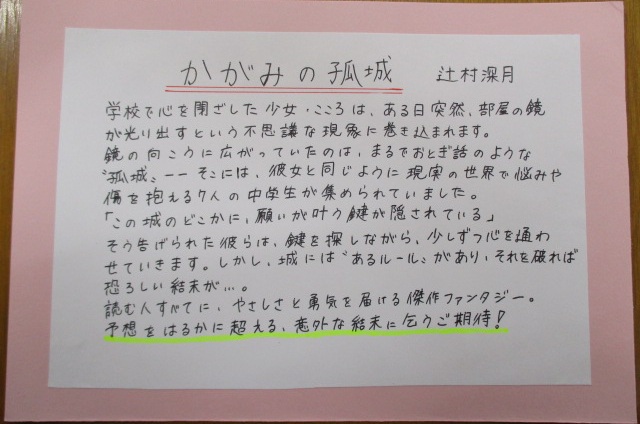 かがみの孤城 辻村深月
学校で心を閉ざした少女・こころは、ある日突然、部屋の鏡
が光り出すという不思議な現象に巻き込まれます。
鏡の向こうに広がっていたのは、まるでおとぎ話のような
〝孤城〟ーーそこには、彼女と同じように現実の世界で悩みや
傷を抱える7人の中学生が集められていました。
「この城のどこかに、願いが叶う鍵が隠されている」
そう告げられた彼らは、鍵を探しながら、少しずつ心を通わ
せていきます。しかし、城には〝あるルール〟があり、それを破れば
恐ろしい結末が…。
読む人すべてに、やさしさと勇気を届ける傑作ファンタジー。
予想をはるかに超える、意外な結末に乞うご期待!